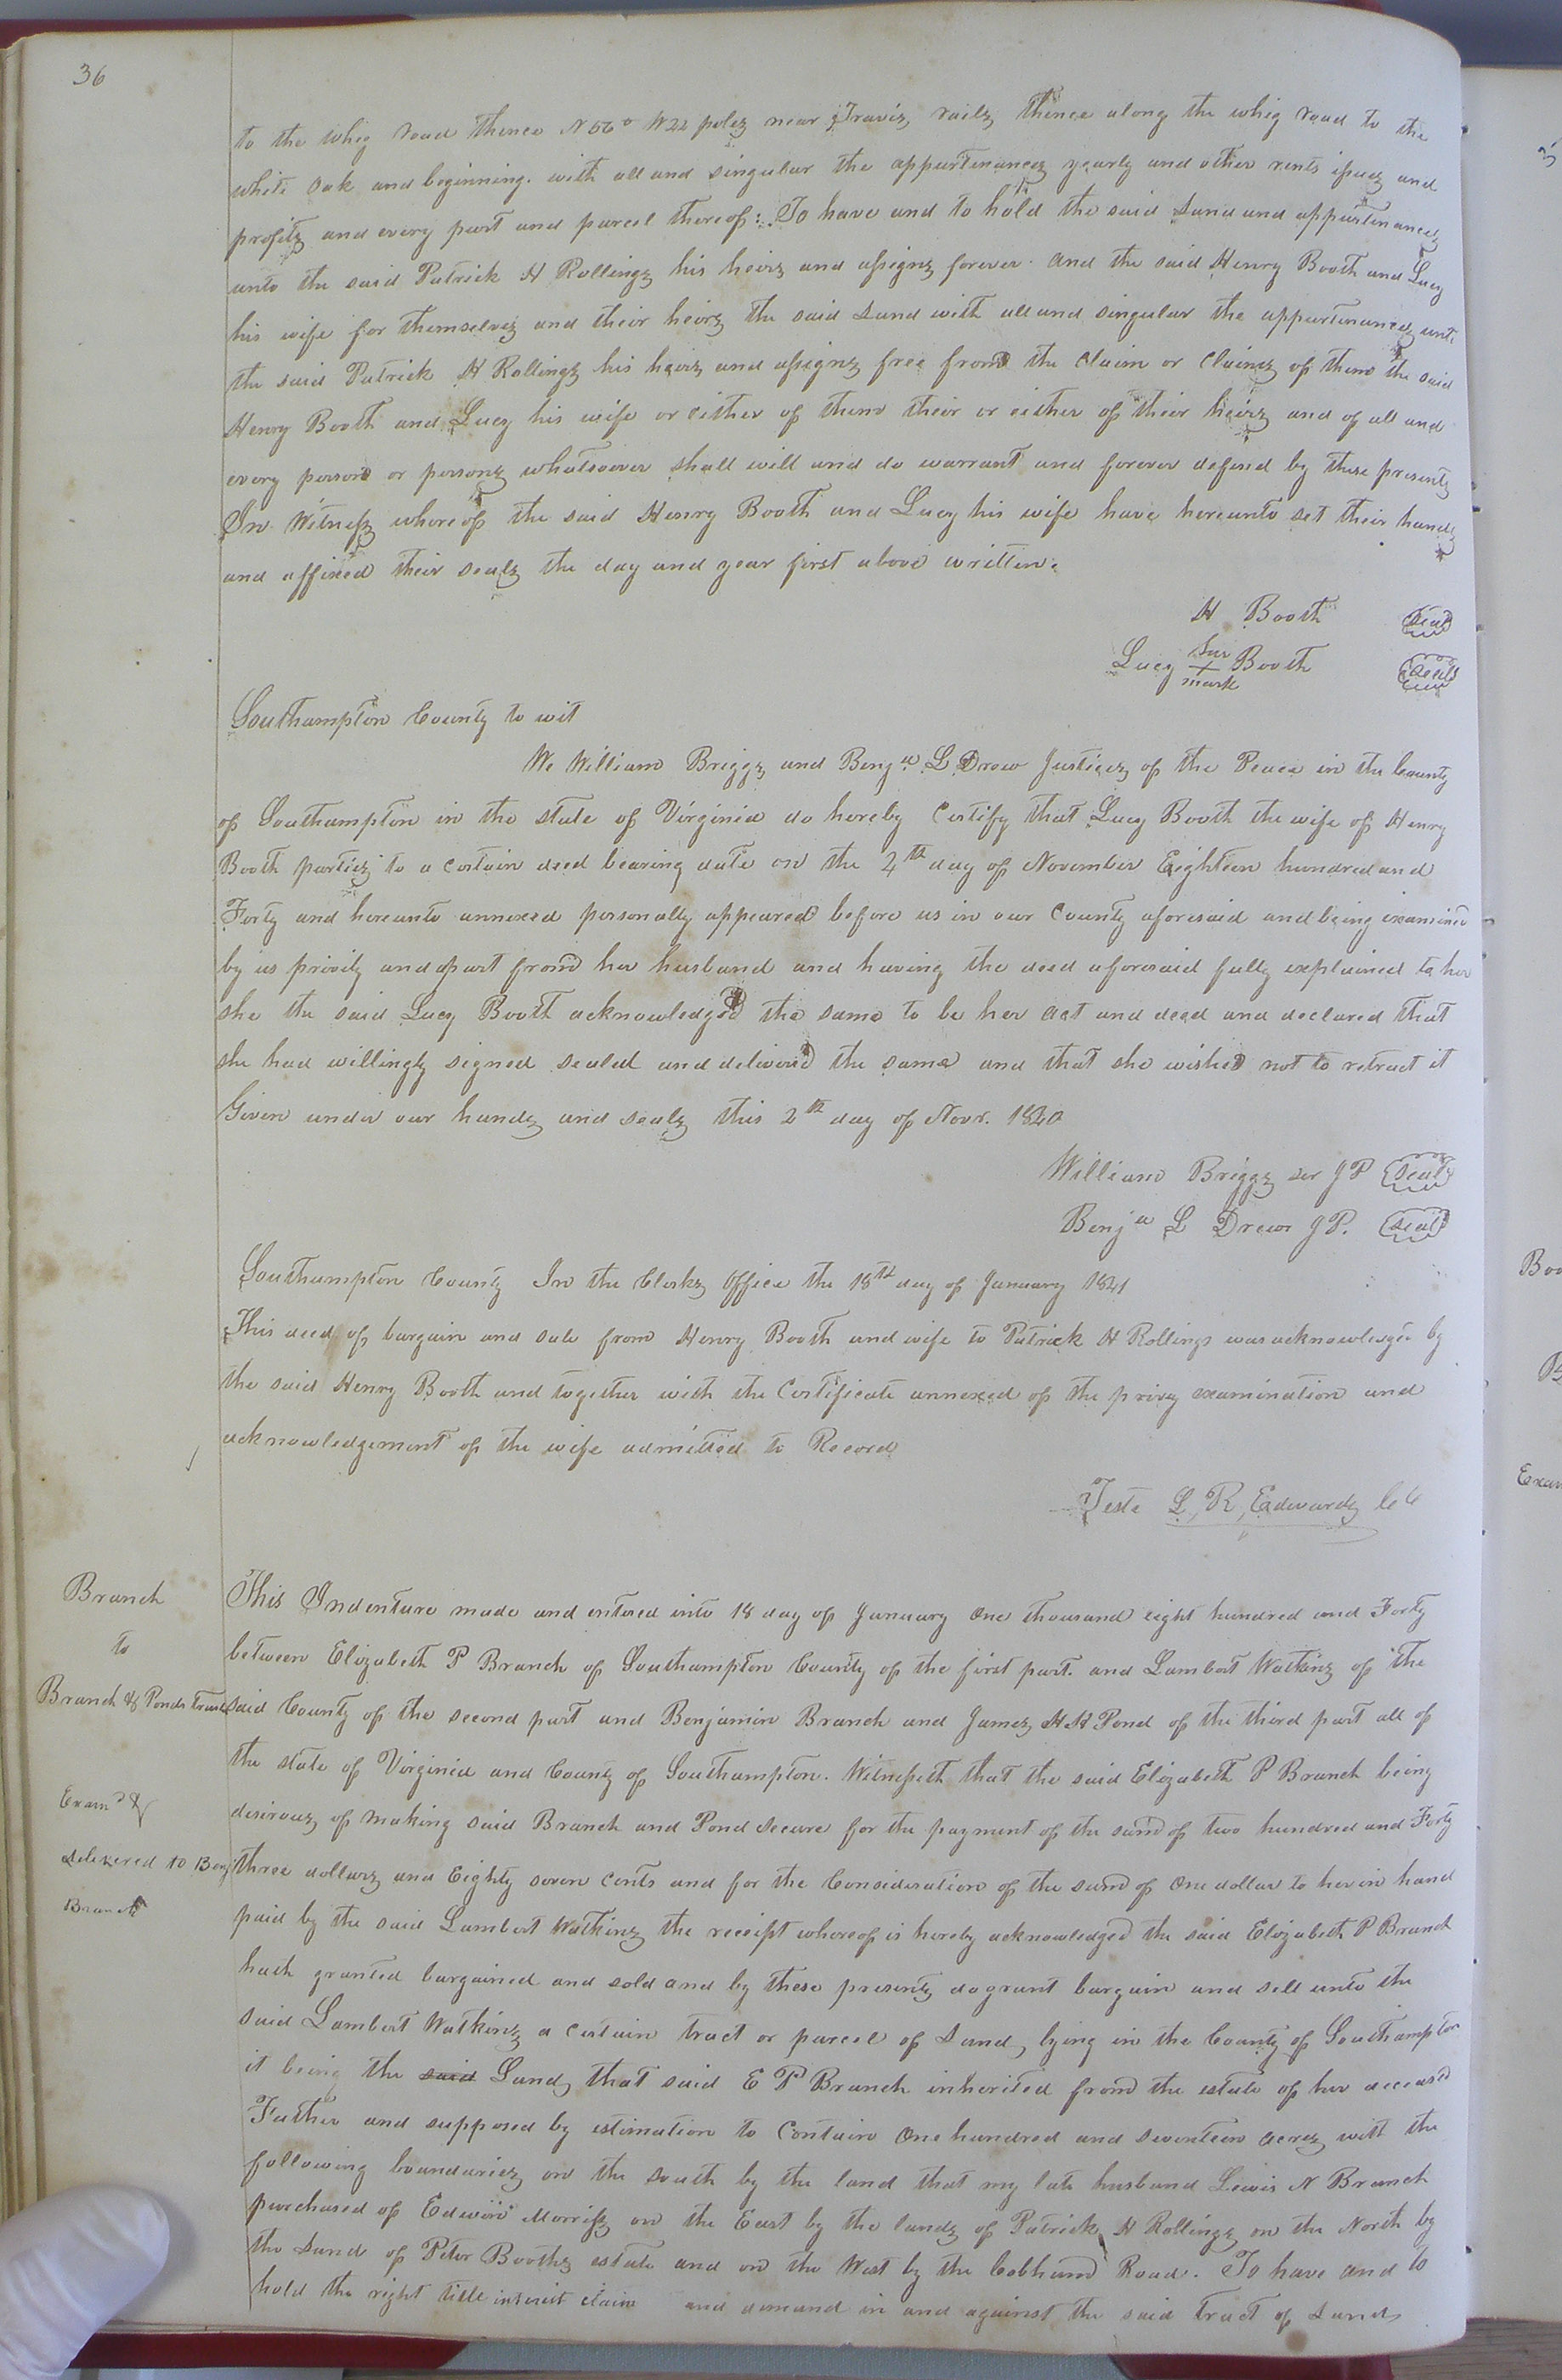 36
to the whig road thence N 56° W 22 poles near Travis rails thence along the whig road to the
white oak and beginning. with all and singular the appurtenances yearly and other rents issues and
profits and every part and parcel thereof: To have and to hold the said Land and appurtenances
unto the said Patrick H Rollings his heirs and assigns forever. and the said Henry Booth and Lucy
his wife for themselves and their heirs the said Land with all and singular the appurtenances unto
the said Patrick H Rollings his heirs and assigns free from the Claim or Claims of them the said
Henry Booth and Lucy his wife or either of them their or either of their heirs and of all and
every person or persons whatsoever shall will and do warrant and forever defend by these presents
In Witness whereof the said Henry Booth and Lucy his wife have hereunto set their hands
and affixed their seals the day and year first above written.
H Booth Seal
her
Lucy + Booth Seal
mark
Southampton County to wit
We William Briggs and Benja L Drew Justices of the Peace in the County
of Southampton in the state of Virginia do hereby Certify that Lucy Booth the wife of Henry
Booth parties to a certain deed bearing date on the 2th day of November Eighteen hundred and
Forty and hereunto annexed personally appeared before us in our County aforesaid and being examined
by us privily and apart from her husband and having the deed aforesaid fully explained to her
she the said Lucy Booth acknowledged the same to be her act and deed and declared that
she had willingly signed sealed and delivered the same and that she wished not to retract it
Given under our hands and seals this 2th day of Novr. 1840
William Briggs ser J P Seal
Benja L Drew J P. Seal
Southampton County In the Clerks Office the 18th day of January 1841
This deed of bargain and sale from Henry Booth and wife to Patrick H Rollings was acknowledged by
the said Henry Booth and together with the Certificate annexed of the privy examination and
acknowledgement of the wife admitted to Record
Teste L, R, Edwards C C
Branch
to
Branch & Ponds trust
Exam'd &
delivered to Benj
Branch
This Indenture made and entered into 18 day of January One thousand eight hundred and Forty
between Elizabeth P Branch of Southampton County of the first part. and Lambert Watkins of the
said County of the second part and Benjamin Branch and James H H Pond of the third part all of
the state of Virginia and County of Southampton. Witnesseth that the said Elizabeth P Branch being
desirous of making said Branch and Pond Secure for the payment of the sum of two hundred and Forty
three dollars and Eighty seven Cents and for the Consideration of the sum of One dollar to her in hand
paid by the said Lambert Watkins the receipt whereof is hereby acknowledged the said Elizabeth P Branch
hath granted bargained and sold and by these presents do grant bargain and sell unto the
said Lambert Watkins a certain tract or parcel of Land, lying in the County of Southampton
it being the said Land, that said E P Branch inherited from the estate of her deceased
Father and supposed by estimation to Contain One hundred and seventeen acres with the
following boundaries on the south by the land that my late husband Lewis N Branch
purchased of Edwin Morriss on the East by the lands of Patrick H Rollings on the North by
the Land of Peter Booths estate and on the West by the Cobham Road. To have and to
hold the right title interest claim and demand in and against the said tract of Land,
Exam